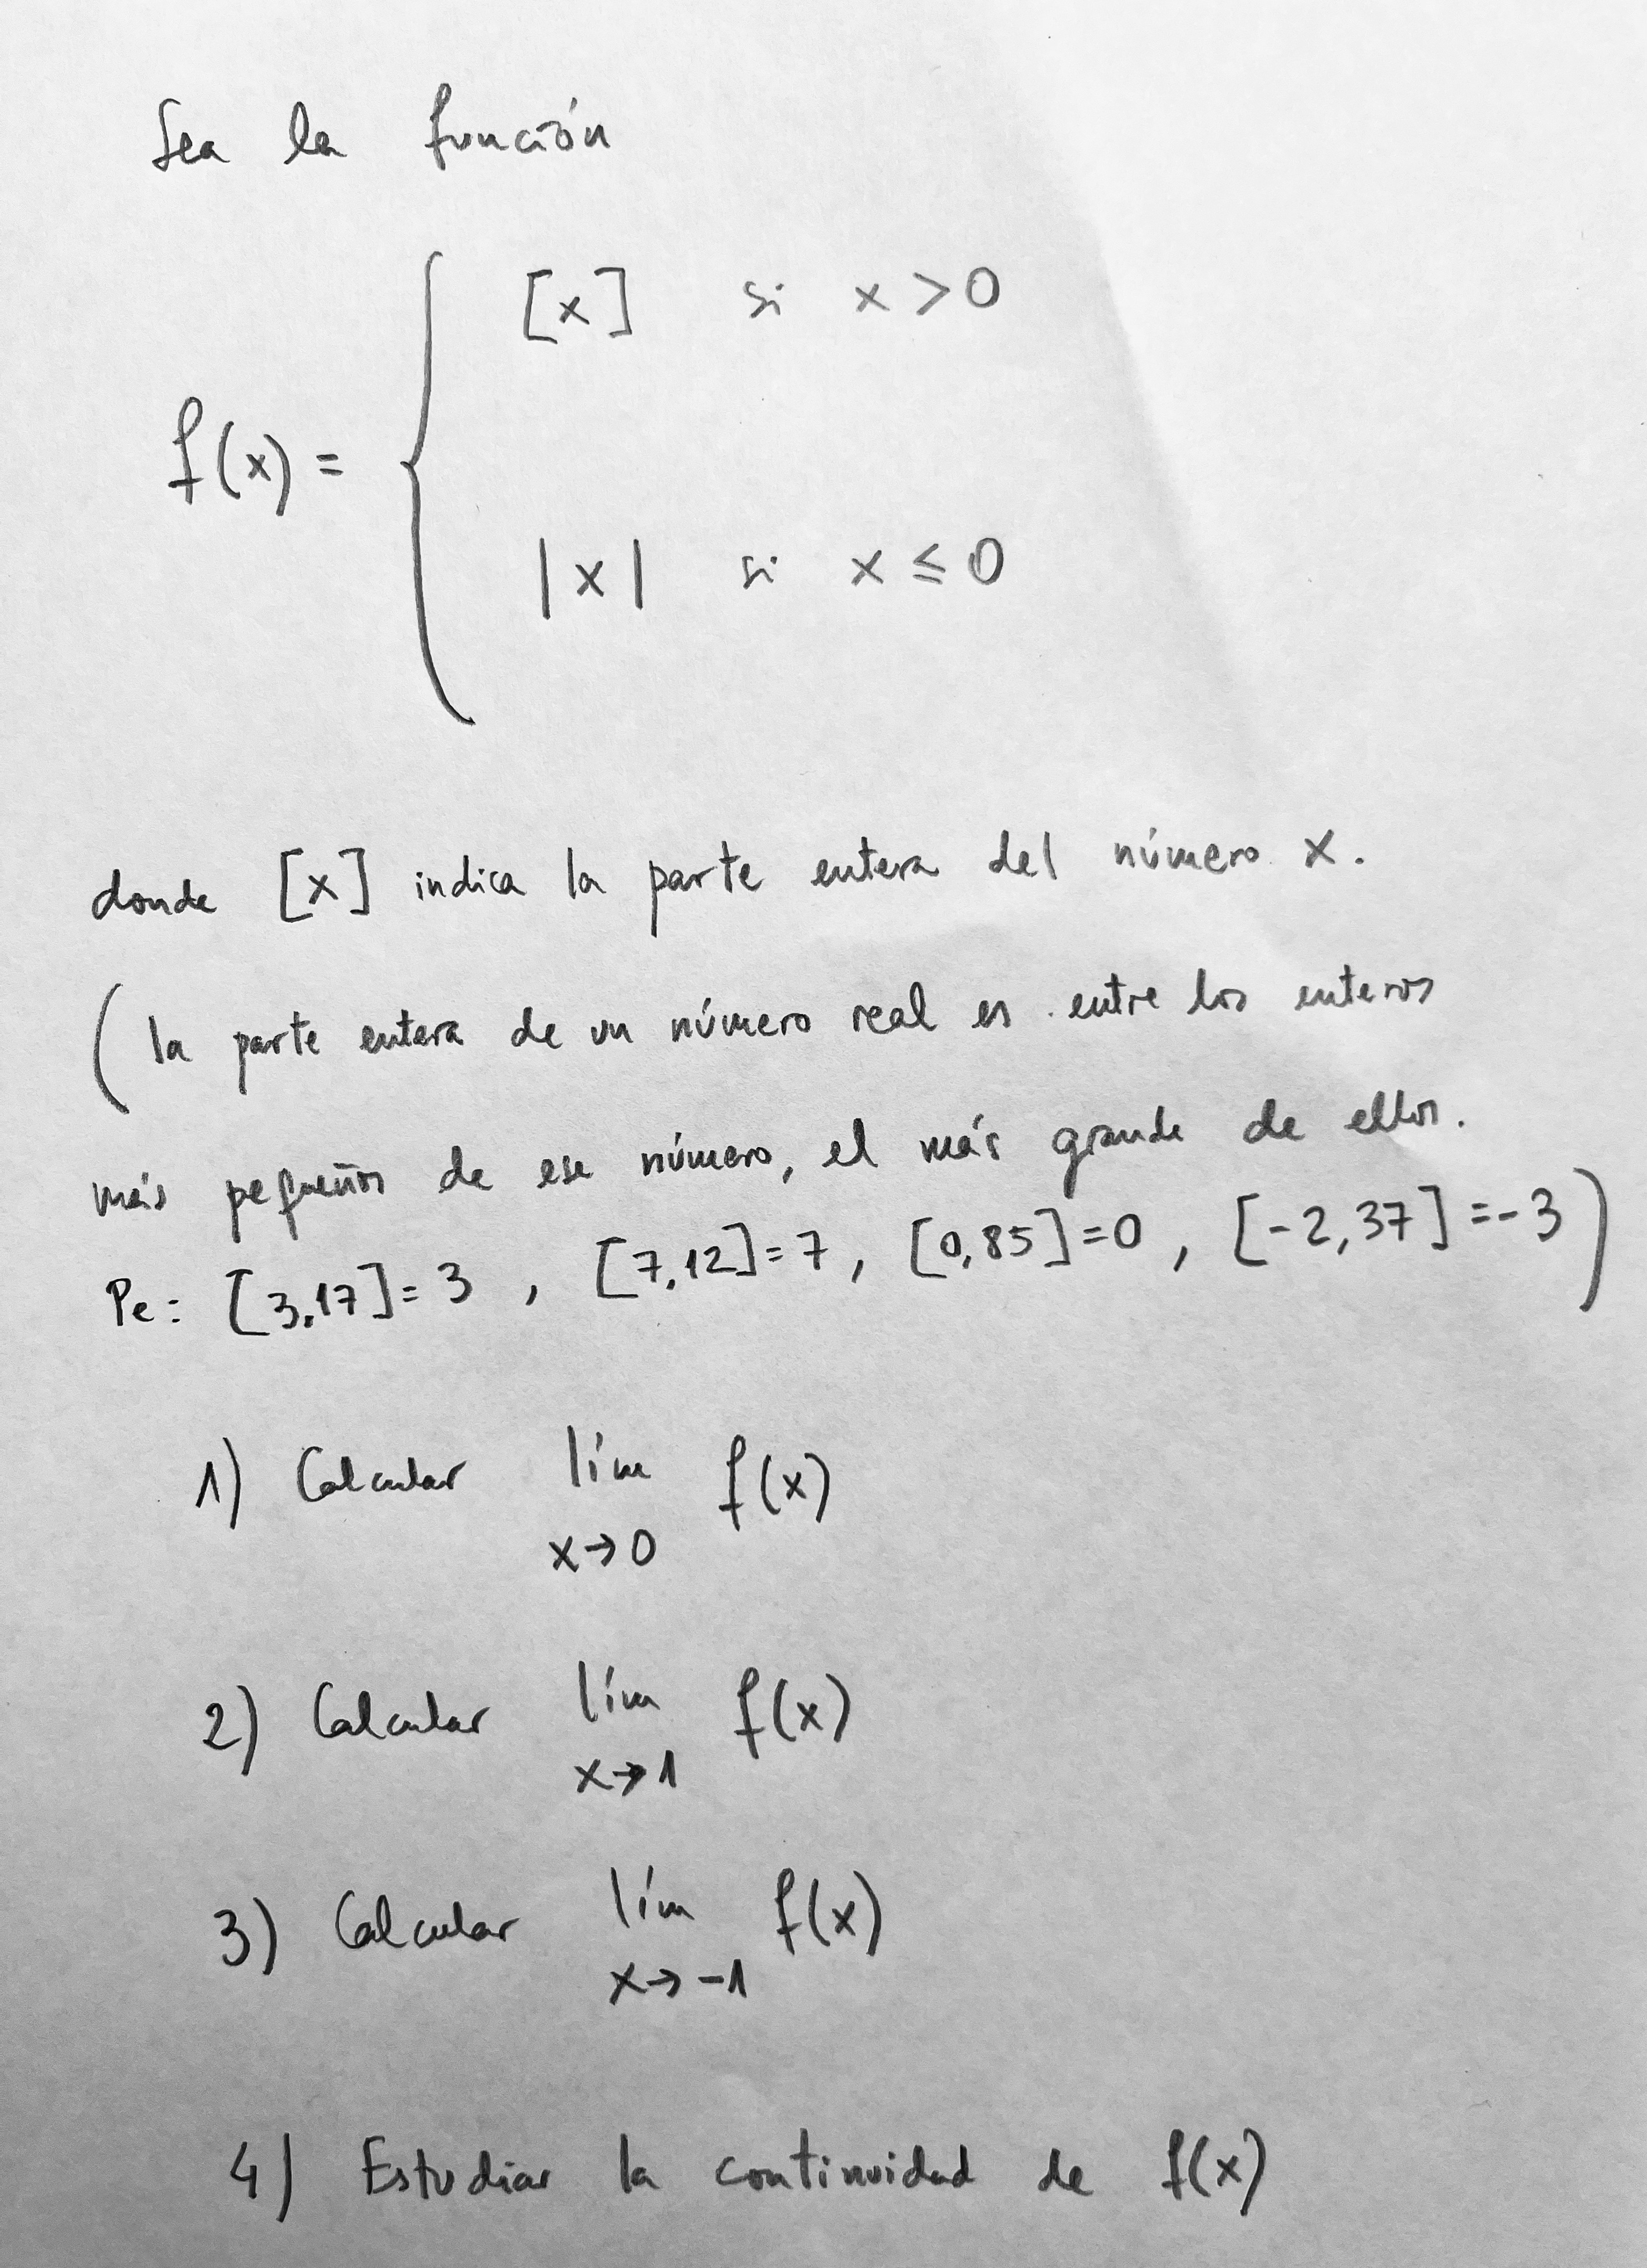 Sea la función
[x] si x > 0
f(x) =
|x| si x ≤ 0
donde [x] indica la parte entera del número x.
(la parte entera de un número real es entre los enteros
más pequeños de ese número, el más grande de ellos.
Pe: [3,17]=3 , [7,12]=7, [0,85]=0 , [-2,37]=-3)
1) Calcular lím f(x)
x→0
2) Calcular lím f(x)
x→1
3) Calcular lím f(x)
x→-1
4) Estudiar la continuidad de f(x)